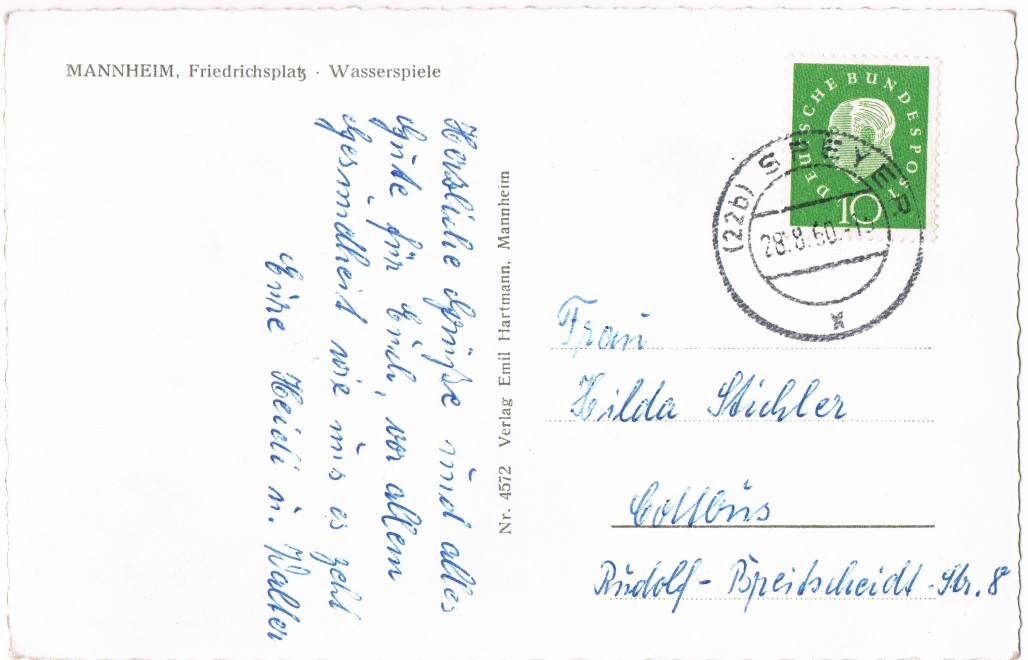 MANNHEIM, Friedrichsplatz · Wasserspiele
Herzliche Grüße und alles
Gute für Euch, vor allem
Gesundheit wie uns es geht
Eure Heidi u. Walter
Nr. 4572 Verlag Emil Hartmann, Mannheim
DEUTSCHE BUNDESPOST
10
(22b) SPEYER
28.8.60.-1
Frau
Hilda Stichler
Cottbus
Rudolf-Breitscheidt-Str. 8